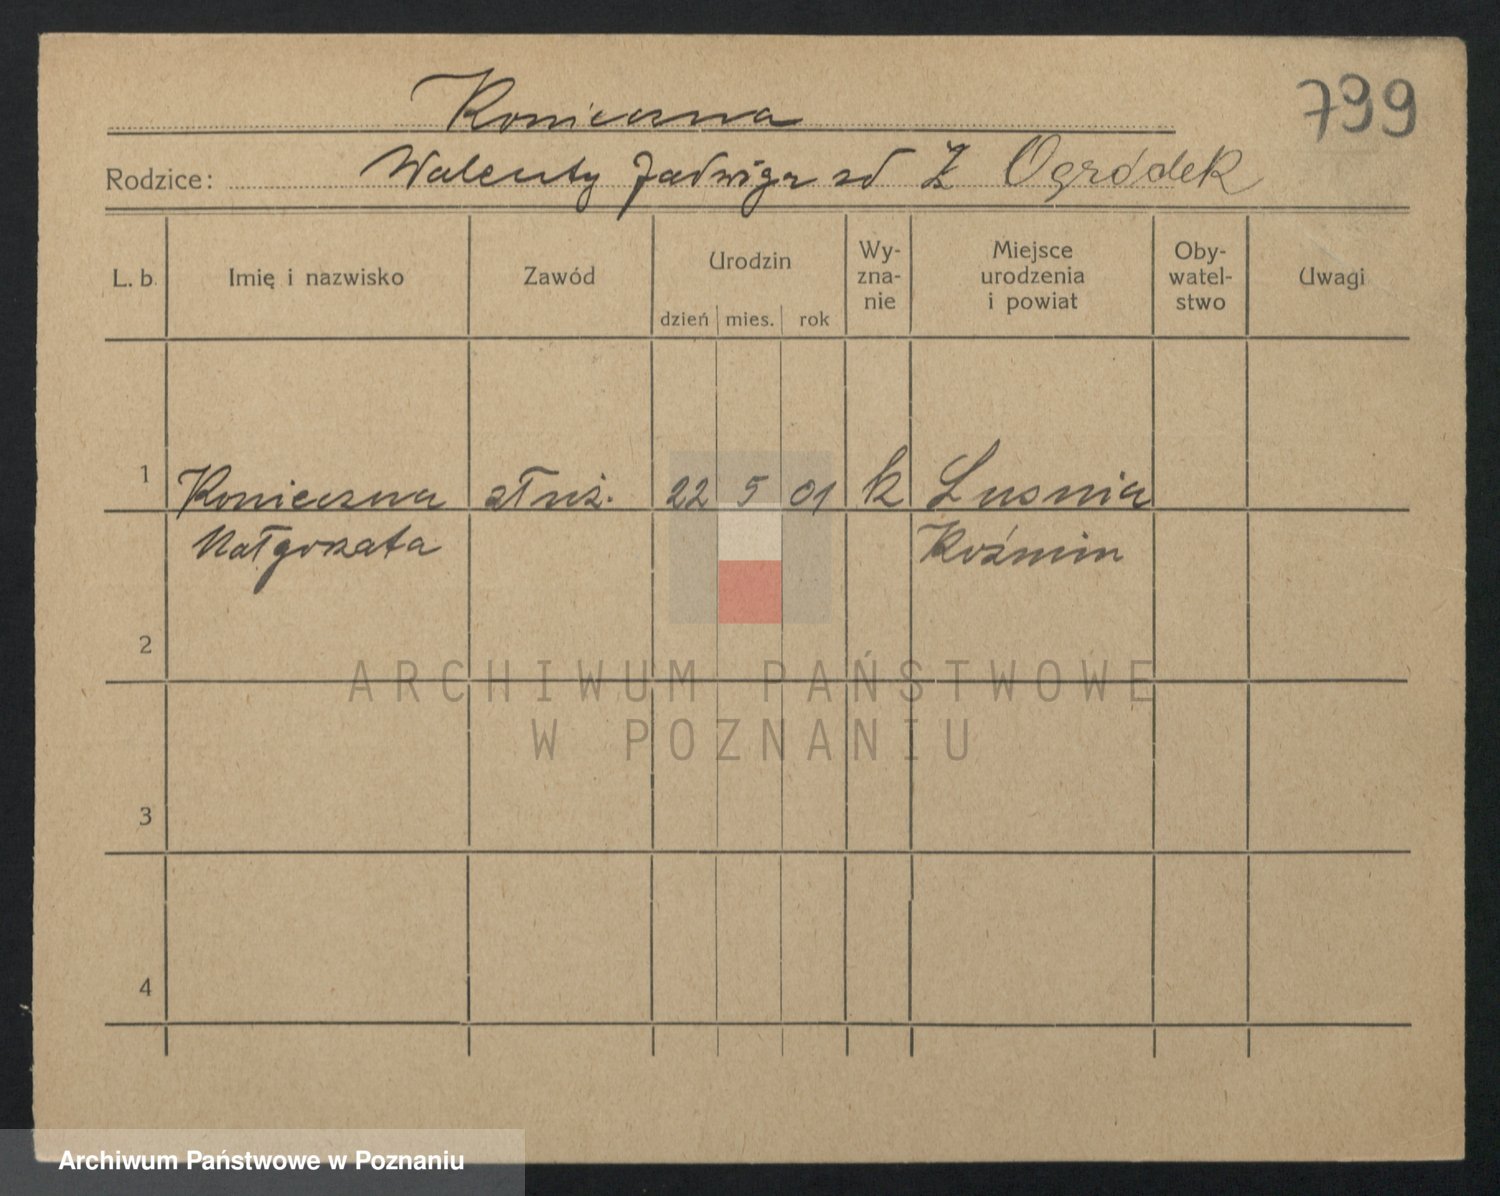 799
Konieczna
Rodzice: Walenty Jadwiga zd Z Ogródek
L. b. Imię i nazwisko Zawód Urodzin dzień mies. rok Wy-zna-nie Miejsce urodzenia i powiat Oby-watel-stwo Uwagi
1 Konieczna służ. 22 5 01 k Lusnia
Małgorzata Koźmin
2
3
4
ARCHIWUM PAŃSTWOWE
W POZNANIU
Archiwum Państwowe w Poznaniu